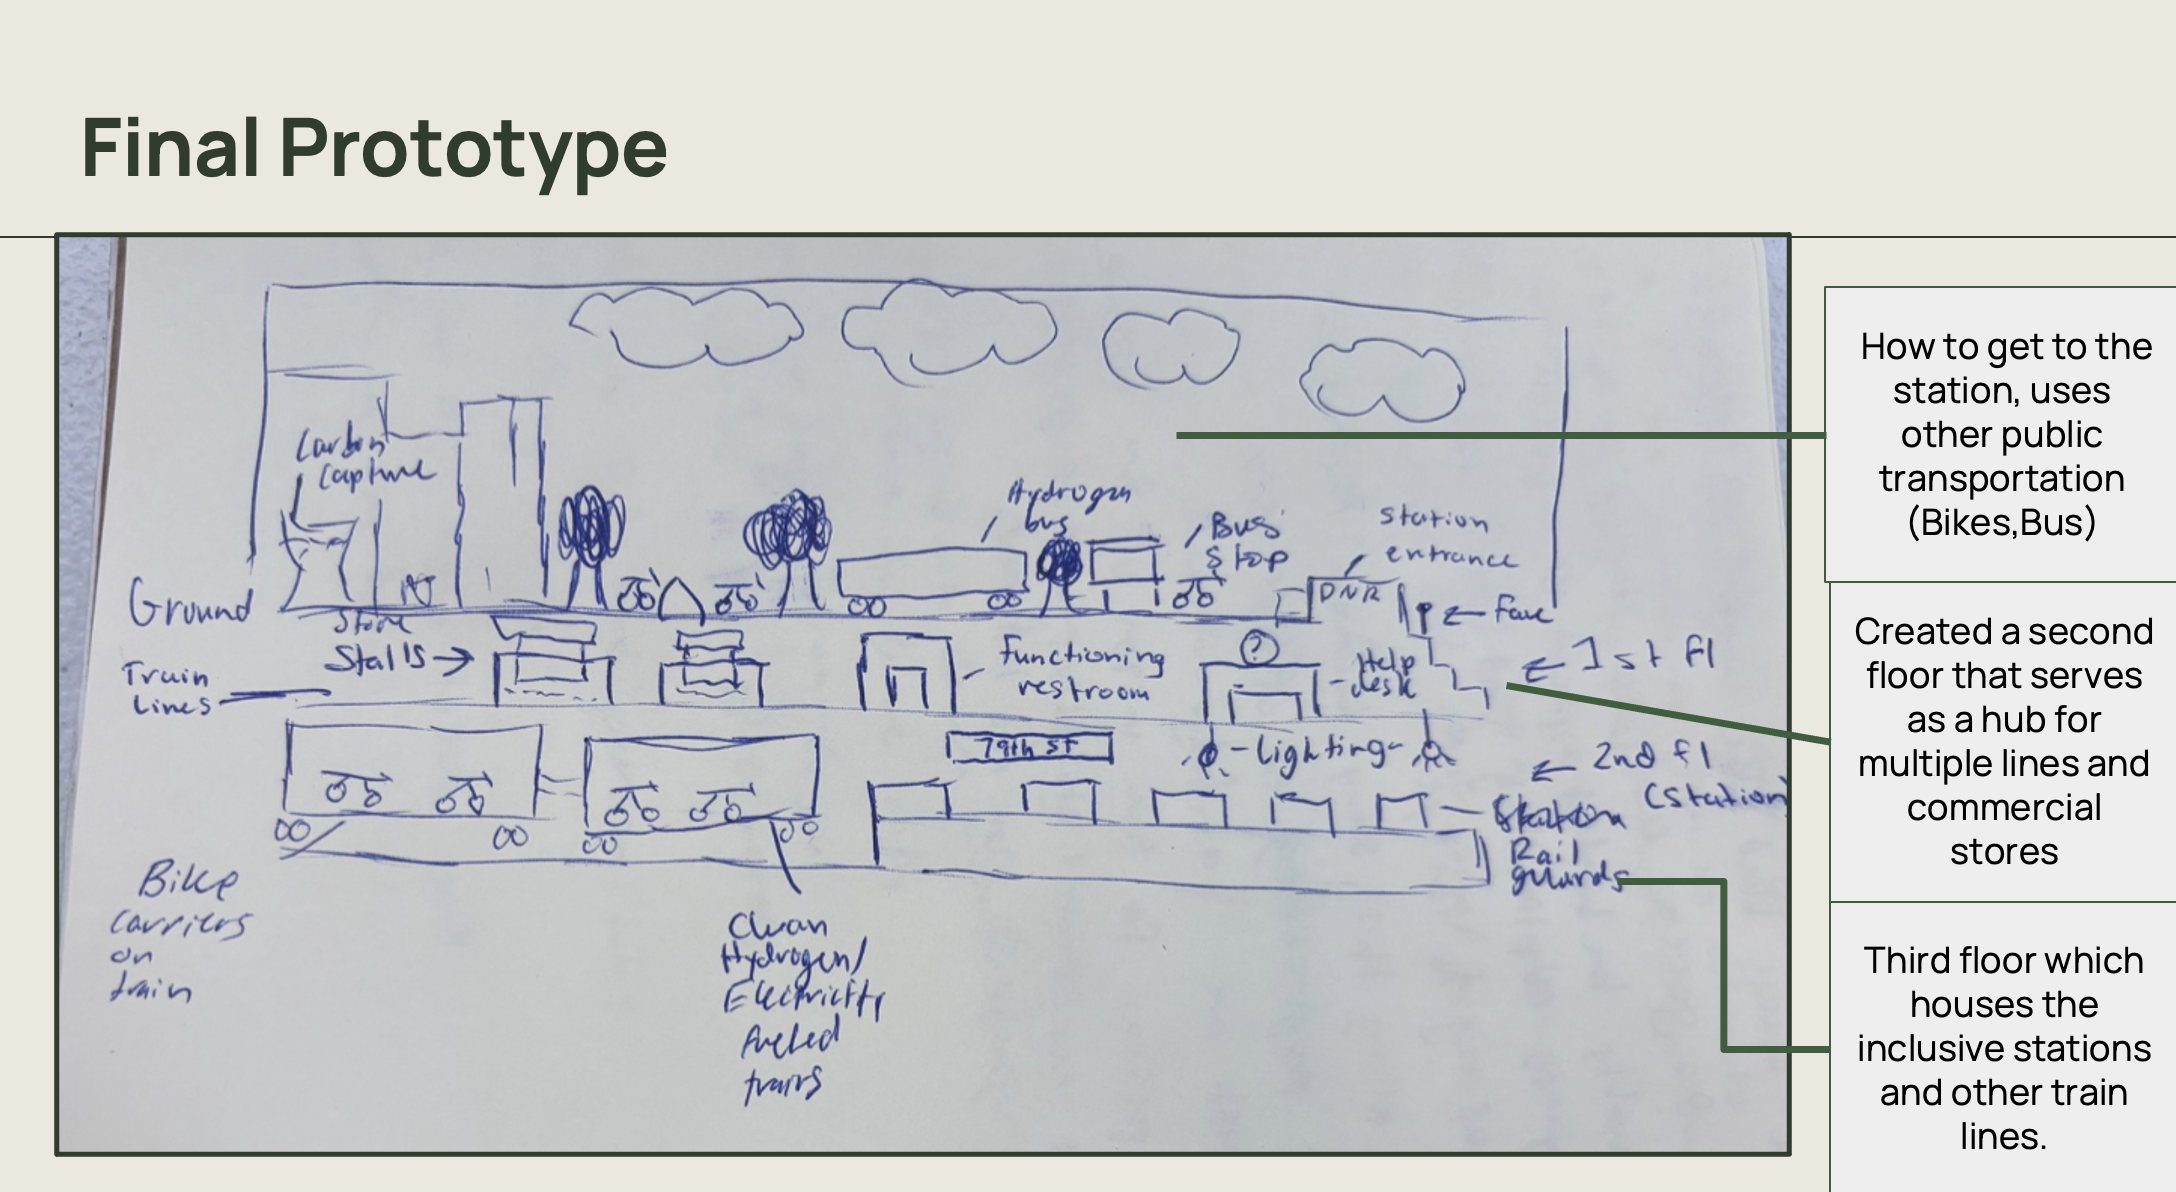 Final Prototype
Carbon
Capture
Hydrogen
bus
Bus
Stop
station
entrance
DNR
Ground
Store
Stalls
Train
Lines
Functioning
restroom
?
Help
desk
Fare
1st fl
79th st
Lighting
2nd fl
(Station)
Station
Rail
guards
Bike
carriers
on
train
Clean
Hydrogen/
Electricity
fueled
trains
How to get to the
station, uses
other public
transportation
(Bikes,Bus)
Created a second
floor that serves
as a hub for
multiple lines and
commercial
stores
Third floor which
houses the
inclusive stations
and other train
lines.